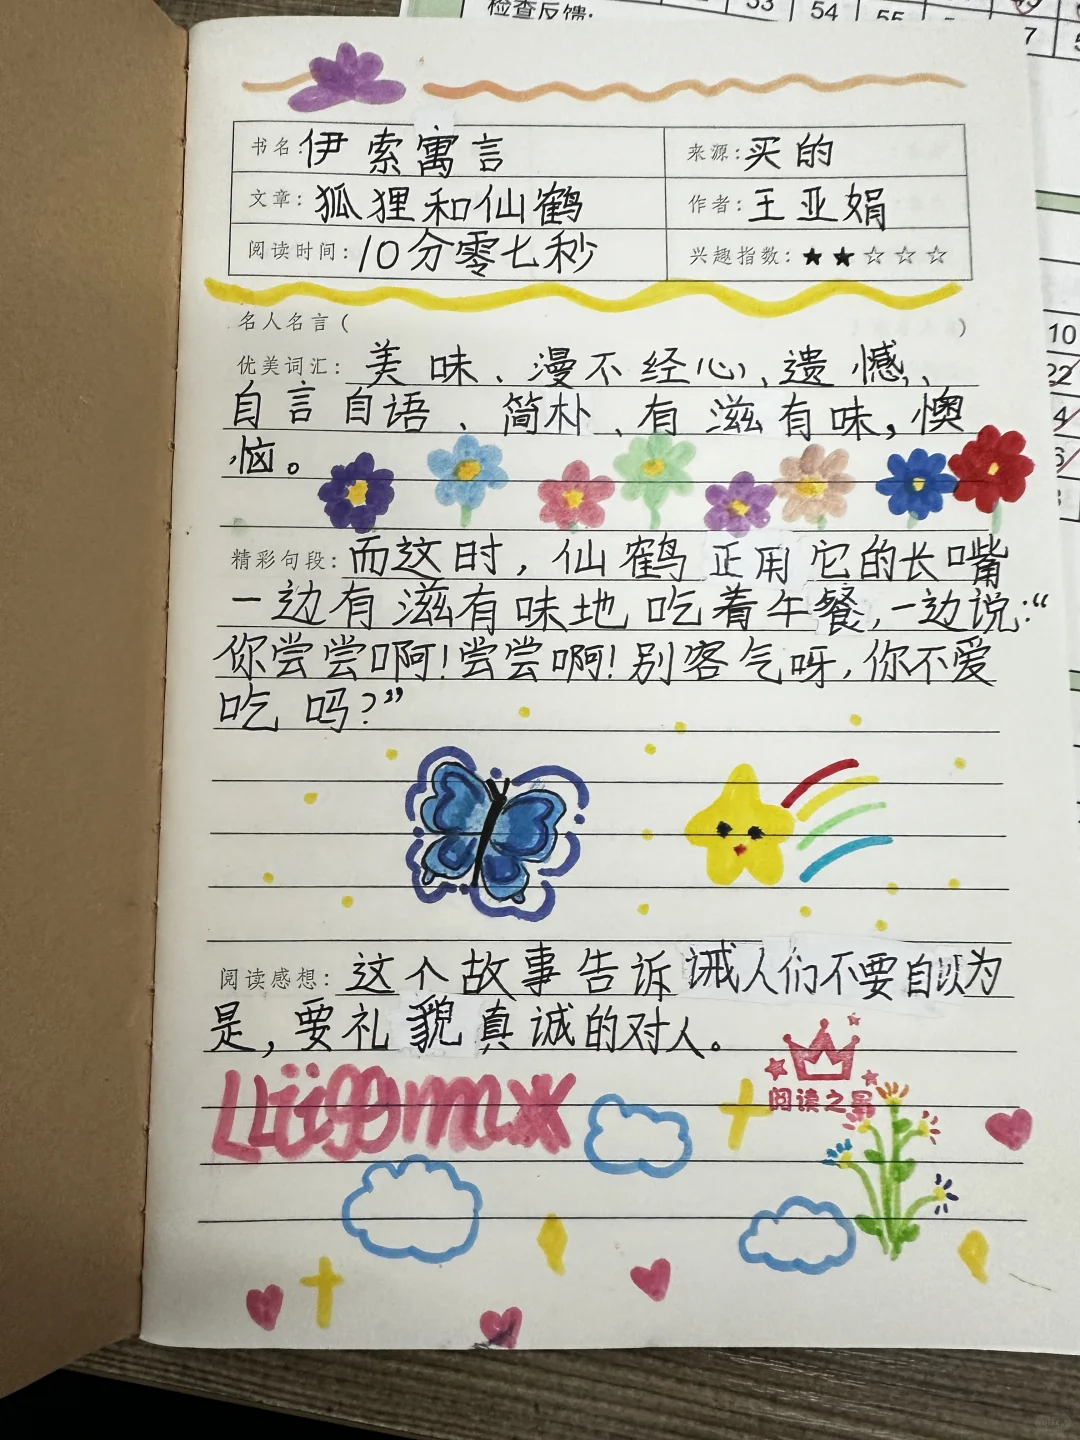 检查反馈:
53 54 55
7
书名:伊索寓言 来源:买的
文章:狐狸和仙鹤 作者:王亚娟
阅读时间:10分零七秒 兴趣指数:★★☆☆☆
名人名言( )
优美词汇:美味、漫不经心、遗憾、
自言自语、简朴、有滋有味,懊
恼。
精彩句段:而这时,仙鹤正用它的长嘴
一边有滋有味地吃着午餐,一边说:“
你尝尝啊!尝尝啊!别客气呀,你不爱
吃吗?”
阅读感想:这个故事告诉诫人们不要自以为
是,要礼貌真诚的对人。
阅读之星
10
22
4
6